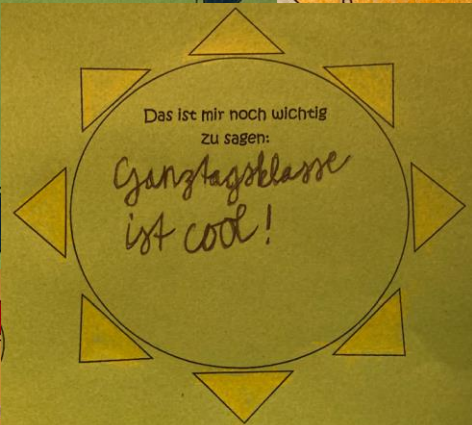 Das ist mir noch wichtig
zu sagen:
Ganztagsklasse
ist cool!